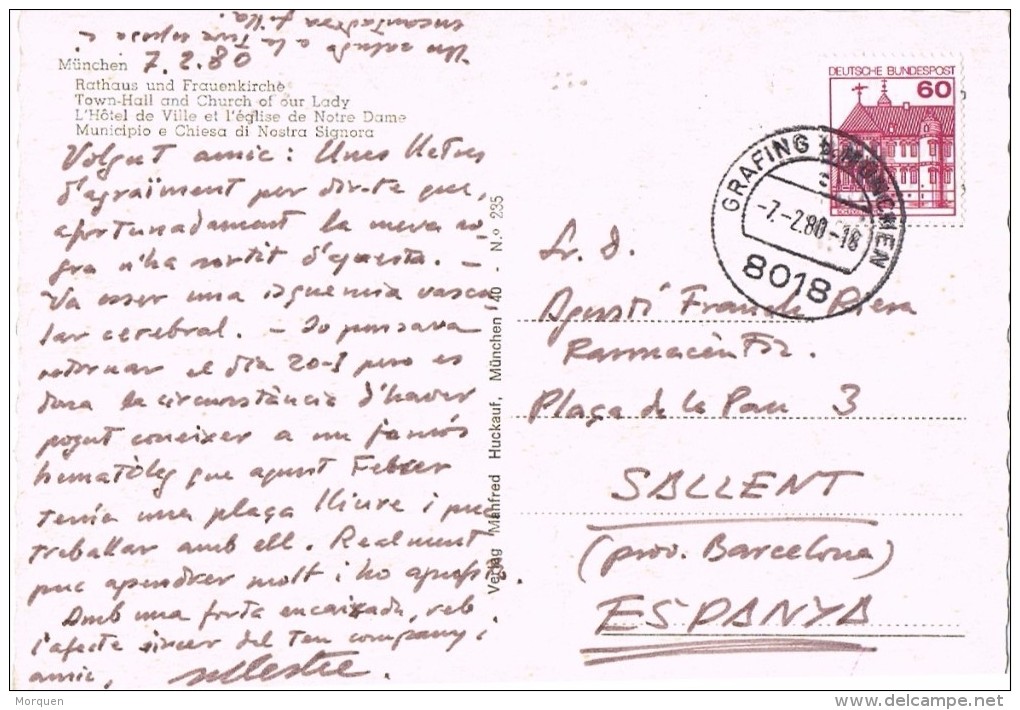 München 7.2.80
Rathaus und Frauenkirche
Town-Hall and Church of our Lady
L'Hôtel de Ville et l'église de Notre Dame
Municipio e Chiesa di Nostra Signora
Volgut amic: Unes lletres
d'agraïment per dir-te que,
afortunadament la meva so-
gra n'ha sortit d'aquesta. -
Va esser una isquemia vascu
lar cerebral. - Jo pensava
retornar el dia 20-3 pero es
dona la circunstància d'haver
pogut coneixer a un famós
hematòleg que aquest Febrer
tenia una plaça lliure i puc
treballar amb ell. Realment
puc apendrer molt i ho aprofito.
Amb una forta encaixada, reb
l'afecte sincer del teu company i
amic,
Un saluda a la teva esposa i
encantadora filla.
Verlag Manfred Huckauf, München 40 - N.º 235
DEUTSCHE BUNDESPOST
60
GRAFING B MÜNCHEN
-7.-2.80-18
8018
Sr. D.
Agustí Franch Riera
Plaça de la Pau 3
SALLENT
(prov. Barcelona)
ESPANYA
Morquen
delcampe.net